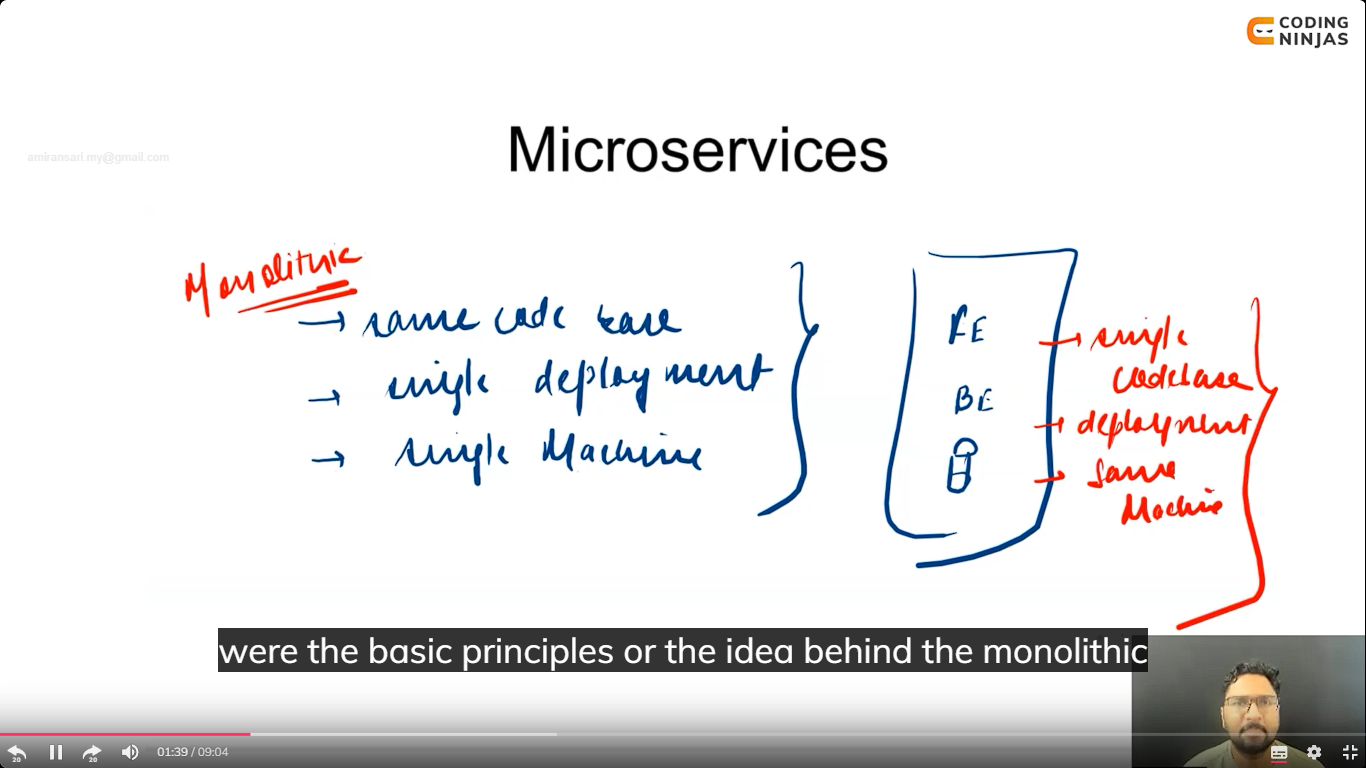 CODING
NINJAS
Microservices
amiransari.my@gmail.com
Monolithic
→ same code base
→ single deployment
→ single Machine
FE
BE
→ single
codebase
→ deployment
→ same
Machine
were the basic principles or the idea behind the monolithic
20
20
01:39 / 09:04